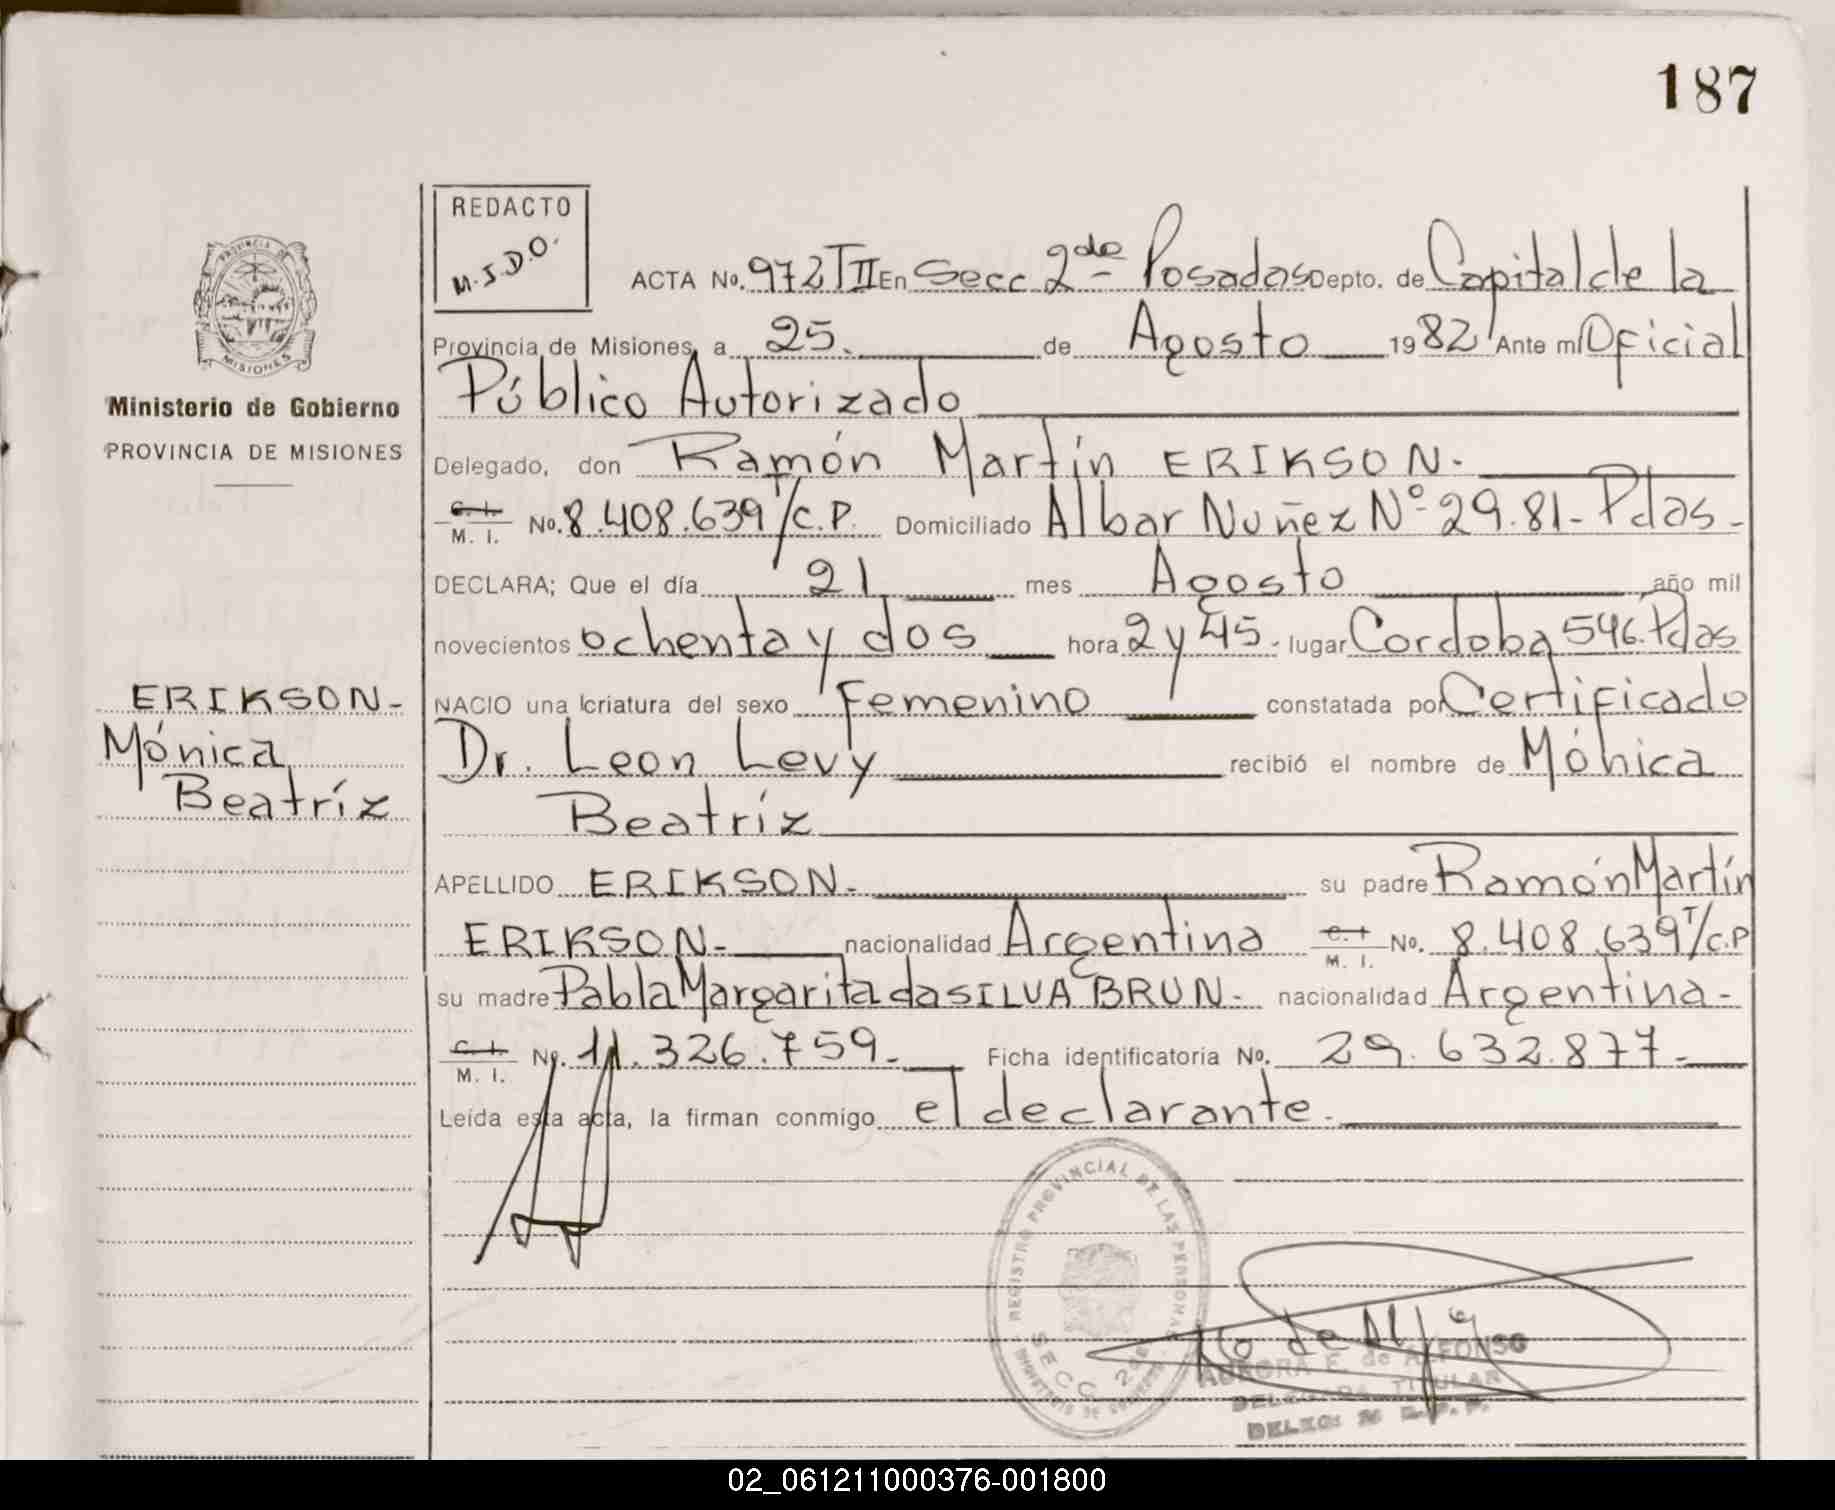 187
REDACTO
M.J.D.O.
ACTA No. 972 TII En Secc 2da Posadas Depto. de Capital de la
Provincia de Misiones, a 25. de Agosto 1982 Ante mi Oficial
Público Autorizado
Delegado, don Ramón Martín ERIKSON.
C. I. M. I. No. 8.408.639 T/C.P. Domiciliado Albar Nuñez Nº 29.81- Pdas-
DECLARA; Que el día 21 mes Agosto año mil
novecientos ochenta y dos hora 2 y 45. lugar Cordoba 546. Pdas
NACIO una criatura del sexo Femenino constatada por Certificado
Dr. Leon Levy recibió el nombre de Mónica
Beatríz
APELLIDO ERIKSON. su padre Ramón Martín
ERIKSON- nacionalidad Argentina C. I. M. I. No. 8.408.639 T/C.P
su madre Pabla Margarita da SILVA BRUN- nacionalidad Argentina-
C. I. M. I. No. 11.326.759- Ficha identificatoria No. 29.632.877-
Leída esta acta, la firman conmigo el declarante.
PROVINCIA DE
MISIONES
Ministerio de Gobierno
PROVINCIA DE MISIONES
ERIKSON-
Mónica
Beatríz
REGISTRO PROVINCIAL DE LAS PERSONAS
SECC 2da
AURORA E. de ALFONSO
DELEGADA TITULAR
02_061211000376-001800